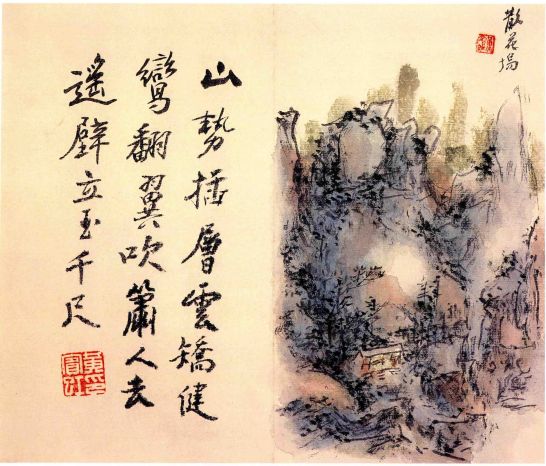 散花塢
山勢插層雲矯健
鸞翻翼吹簫人去
遥壁立玉千尺